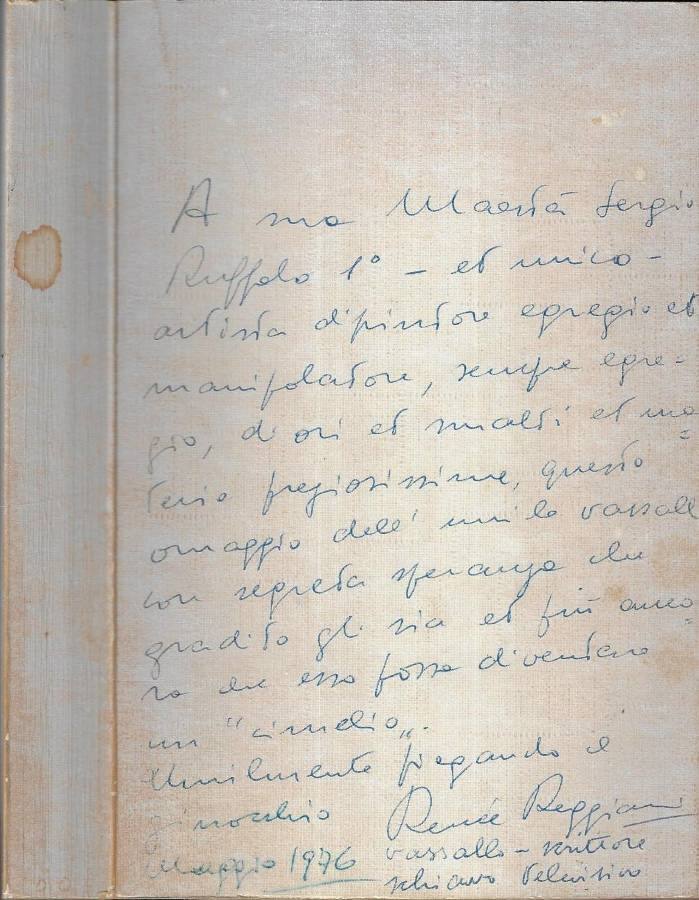 A sua Maestà Sergio
Ruffolo 1° - et unico -
artista dipintore egregio et
manipolatore, sempre egre-
gio, di ori et smalti et ma=
terie pregiosissime, questo
omaggio dell' umile vassall
con segreta speranza che
gradito gli sia et più anco=
ra che esso possa diventare
un "cimelio„.
Umilmente piegando il
ginocchio Renée Reggiani
Maggio 1976 vassallo - scrittore
schiavo televisivo